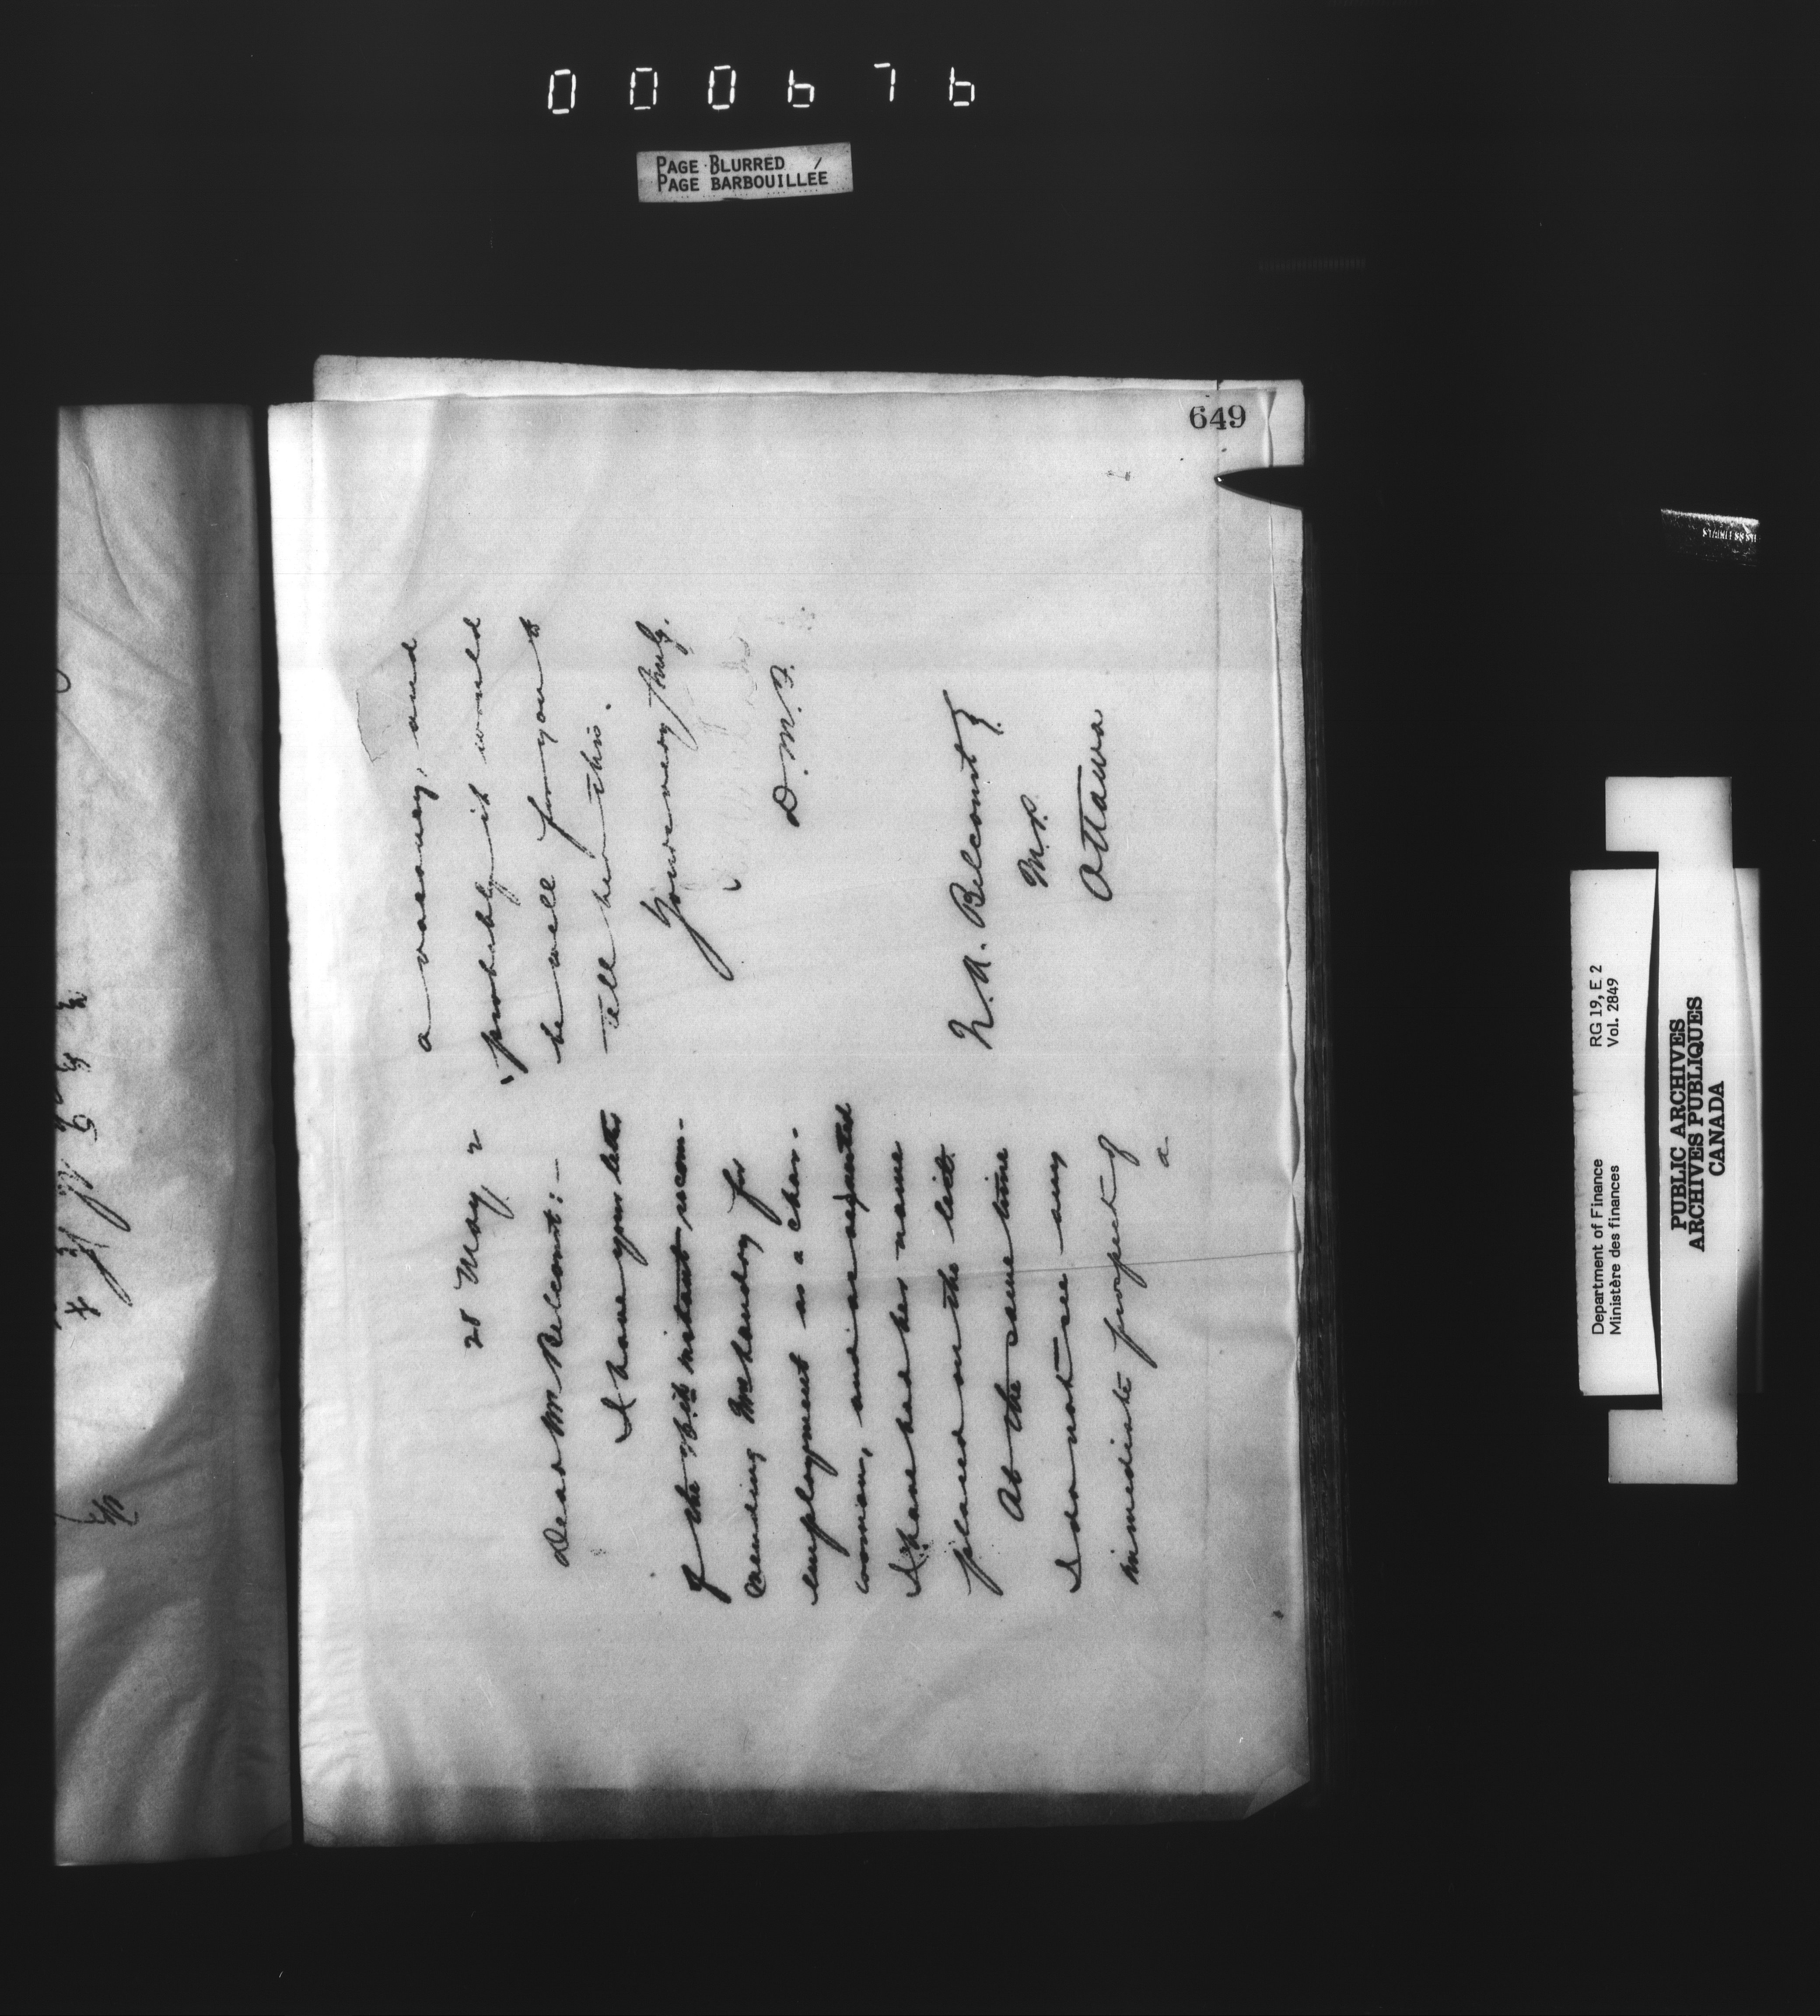 000676
PAGE BLURRED
PAGE BARBOUILLÉE
649
28 May, 2
Dear Mr Belcourt:—
I have your letter
of the 26th instant recom-
mending for
employment as a char-
woman, and as requested
I have had her name
placed on the list.
At the same time
I do not see any
immediate prospect of
a
a vacancy, and
probably it would
be well for you to
tell her this.
Yours very truly.
D.M.F.
N.A. Belcourt
M.P.
Ottawa
Department of Finance
Ministère des finances
RG 19, E 2
Vol. 2849
PUBLIC ARCHIVES
ARCHIVES PUBLIQUES
CANADA